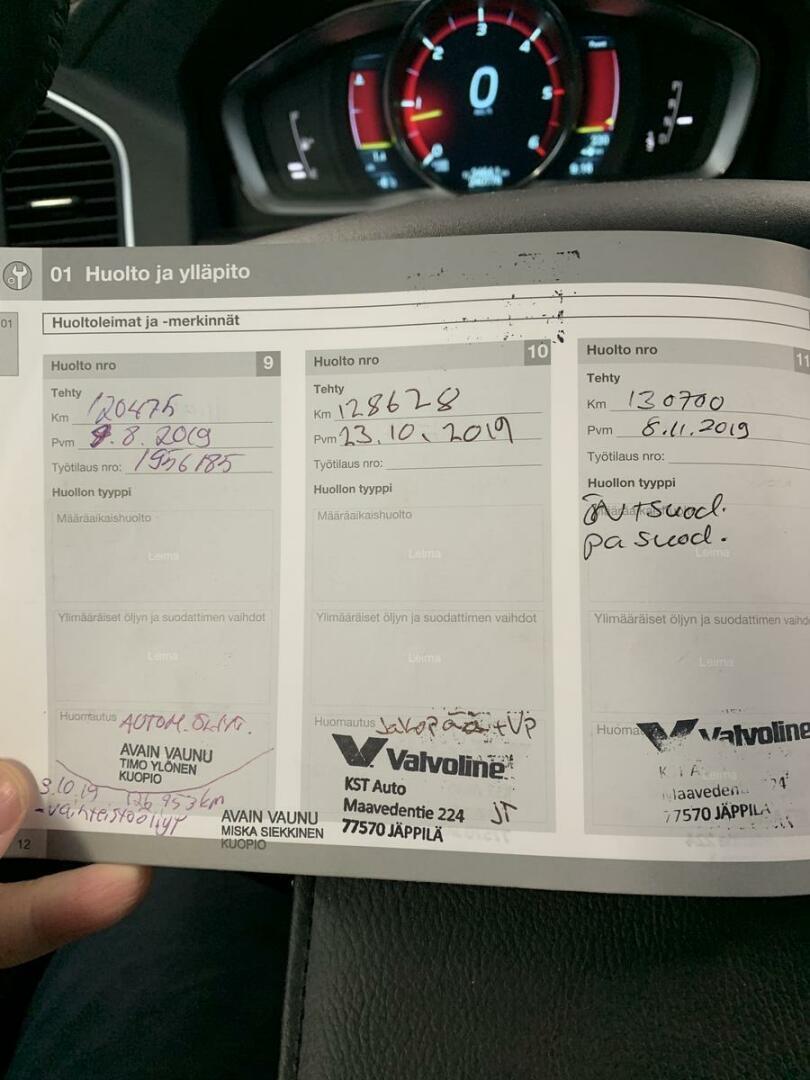 3
2
4
0
5
1
6
0
01 Huolto ja ylläpito
01
Huoltoleimat ja -merkinnät
Huolto nro 9
Tehty
Km 120475
Pvm 9.8.2019
Työtilaus nro: 1956185
Huollon tyyppi
Määräaikaishuolto
Leima
Ylimääräiset öljyn ja suodattimen vaihdot
Leima
Huomautus AUTOM. ÖLJYT.
AVAIN VAUNU
TIMO YLÖNEN
KUOPIO
3.10.19 126 953 km
-vaihteistoöljyt
AVAIN VAUNU
MISKA SIEKKINEN
KUOPIO
12
Huolto nro 10
Tehty
Km 128628
Pvm 23.10.2019
Työtilaus nro:
Huollon tyyppi
Määräaikaishuolto
Leima
Ylimääräiset öljyn ja suodattimen vaihdot
Leima
Huomautus Jakopää+Vp
Valvoline
KST Auto
Maavedentie 224 JT
77570 JÄPPILÄ
Huolto nro 11
Tehty
Km 130700
Pvm 8.11.2019
Työtilaus nro:
Huollon tyyppi
Määräaikaishuolto
öV+suod.
pa suod.
Leima
Ylimääräiset öljyn ja suodattimen vaihd
Leima
Huoma
Valvoline
Leima
77570 JÄPPILÄ